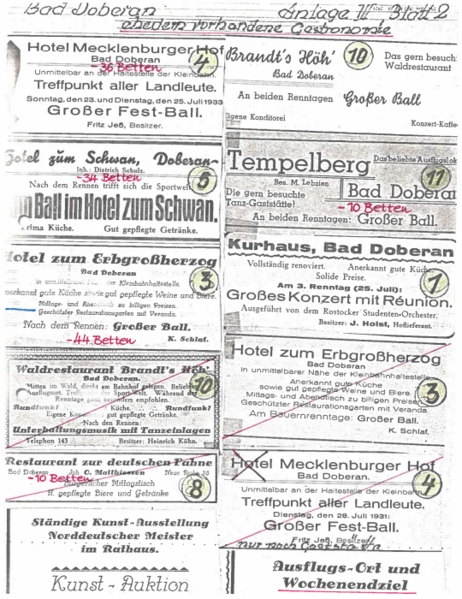 Bad Doberan Anlage III Blatt 2
ehedem vorhandene Gastronomie
Hotel Mecklenburger Hof
Bad Doberan
4
-36 Betten
Unmittelbar an der Haltestelle der Kleinbahn.
Treffpunkt aller Landleute.
Sonntag, den 23. und Dienstag, den 25. Juli 1933
Großer Fest-Ball.
Fritz Jeß, Besitzer.
Hotel zum Schwan, Doberan
Inh.: Dietrich Schulz.
-34 Betten
5
Nach dem Rennen trifft sich die Sportwelt
Ball im Hotel zum Schwan.
Prima Küche. Gut gepflegte Getränke.
Hotel zum Erbgroßherzog
Bad Doberan
3
in unmittelbarer Nähe der Kleinbahnhaltestelle.
Anerkannt gute Küche sowie gut gepflegte Weine und Biere.
Mittags- und zu billigen Preisen.
Geschützter Restaurationsgarten mit Veranda.
Nach dem Rennen: Großer Ball.
-44 Betten
K. Schlaf.
Waldrestaurant Brandt's Höh'
Bad Doberan.
10
Mitten im Wald, direkt am Bahnhof gelegen.
Ausflugsort. Treff der Sport-Welt. Während der
Renntage ganz besonders empfohlen.
Rundfunk! Küche. Rundfunk!
Eigene gut gepflegte Getränke.
Nach den Rennen:
Unterhaltungsmusik mit Tanzeinlagen
Telephon 143 Besitzer: Heinrich Köhn.
Restaurant zur deutschen Fahne
Bad Doberan Inh. O. Matthiessen
-10 Betten
8
bürgerlicher Mittagstisch
ff. gepflegte Biere und Getränke
Ständige Kunst-Ausstellung
Norddeutscher Meister
im Rathaus.
Kunst-Auktion
Brandt's Höh'
Bad Doberan
10
Das gern besuch
Waldrestaurant
An beiden Renntagen Großer Ball
Eigene Konditorei Konzert-Kaffee
Tempelberg
Das beliebte Ausflugslok
11
Bes. M. Lebzien
Die gern besuchte
Tanz-Gaststätte!
Bad Doberan
-10 Betten
An beiden Renntagen: Großer Ball.
Kurhaus, Bad Doberan
Vollständig renoviert. Anerkannt gute Küche
Solide Preise.
1
Am 3. Renntag (25. Juli):
Großes Konzert mit Réunion.
Ausgeführt von dem Rostocker Studenten-Orchester.
Besitzer: J. Holst, Hoflieferant.
Hotel zum Erbgroßherzog
Bad Doberan
3
In unmittelbarer Nähe der Kleinbahnhaltestelle.
Anerkannt gute Küche
sowie gut gepflegte Weine und Biere
Mittags- und Abendtisch zu billigen Preisen
Geschützter Restaurationsgarten mit Veranda
Am Bauernrenntage: Großer Ball.
K. Schlaf.
Hotel Mecklenburger Hof
Bad Doberan.
4
Unmittelbar an der Haltestelle der Kleinbahn
Treffpunkt aller Landleute.
Dienstag, den 28. Juli 1931:
Großer Fest-Ball.
Fritz Jeß, Besitzer
nur noch
Ausflugs-Ort und
Wochenendziel